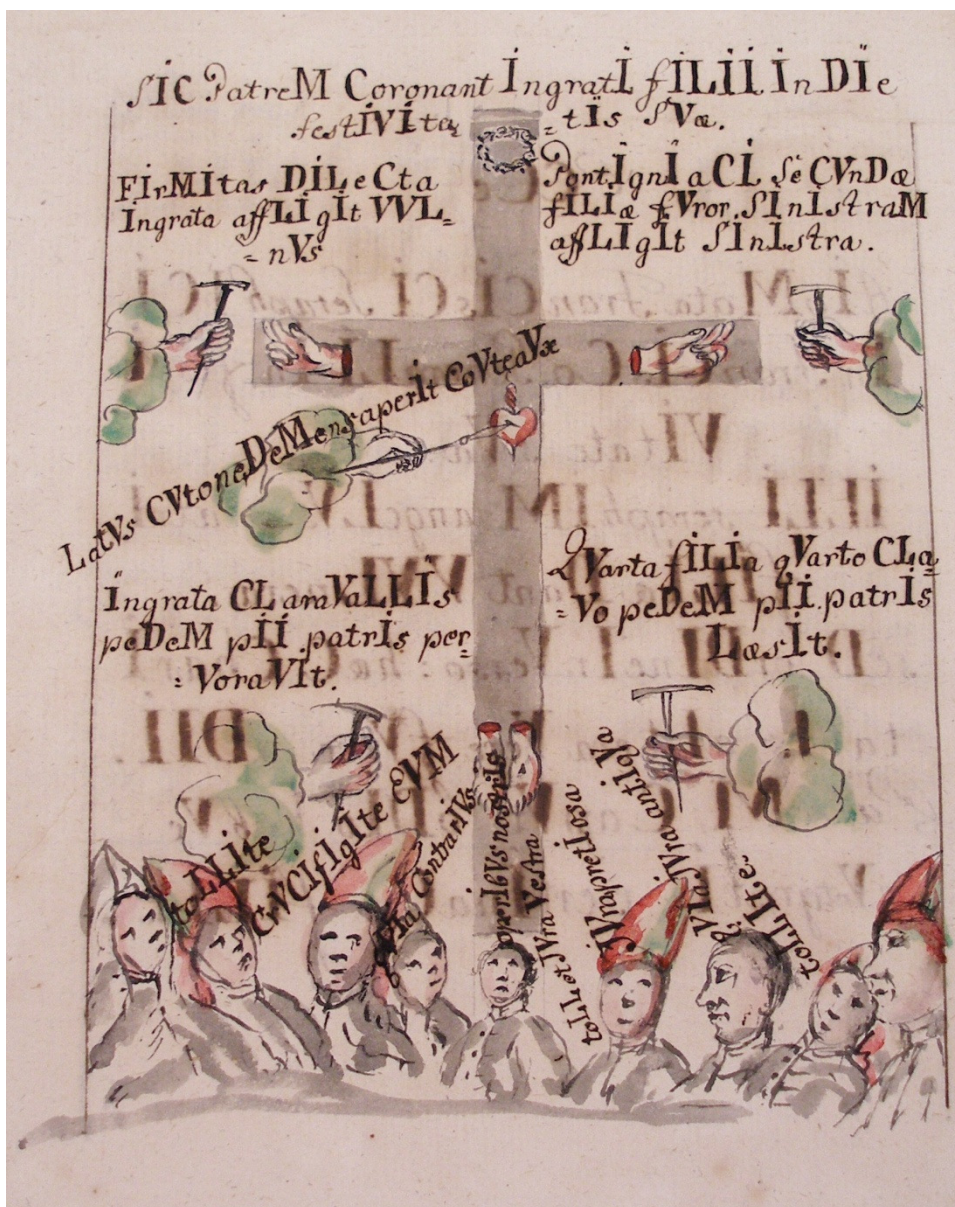 SIC PatreM Coronant IngratI fILII. In DÏe
festIVIta= =tIs SVæ.
FIrMItas DILeCta
Ingrata affLIgIt VVL=
=nVs
PontIgnIaCI SeCVnDæ
fILIæ fVror. SInIstraM
affLIgIt SInIstra.
LatVs CVtoneDeMensaperIt CoVteaVx
Ingrata CLaraVaLLIs
peDeM pII. patrIs per=
=VoraVIt.
QVarta fILIa qVarto CLa=
=Vo peDeM pII. patrIs
LæsIt.
toLLIte
CrVCIfIgIte EVM
ContrarIVs
operIbVs nostrIs
toLLet JVra Vestra
antIqVa
qVIa JVra
toLLIte.